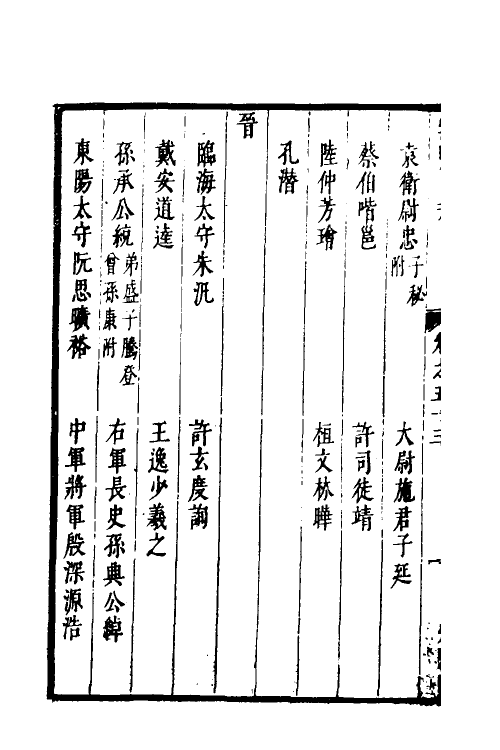 袁衛尉忠子秘附
大尉施君子延
蔡伯喈邕
許司徒靖
陸仲芳璯
桓文林曄
孔潛
晉
臨海太守朱汎
許玄度詢
戴安道逵
王逸少羲之
孫承公統弟盛子騰登曾孫康附
右軍長史孫興公綽
東陽太守阮思曠裕
中軍將軍殷深源浩
卷之五十三